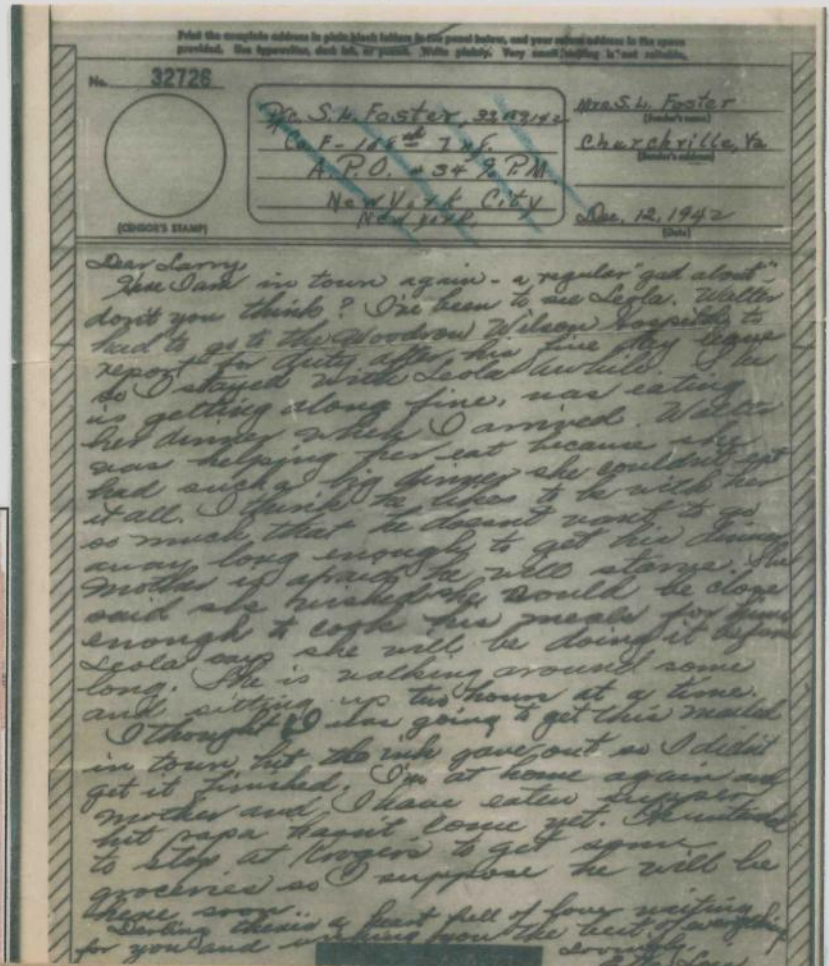 Print the complete address in plain block letters in the panel below, and your return address in the space
provided. Use typewriter, dark ink, or pencil. Write plainly. Very small writing is not suitable.
No. 32726
(CENSOR'S STAMP)
Pfc. S. L. Foster,
Co F - 168th Inf.
A.P.O. # 34 % P.M.
New York City
New York
Mrs S. L. Foster
(Sender's name)
Churchville, Va
(Sender's address)
Dec. 12, 1942
(Date)
Dear Larry
Here I am in town again - a regular "gad about"
don't you think? I've been to see Leola. Walter
had to go to the Woodrow Wilson Hospital to
report for duty after his five day leave
so I stayed with Leola awhile. She
is getting along fine, was eating
her dinner when I arrived. Walter
was helping her eat because she
had such a big dinner she couldn't eat
it all. I think he likes to be with her
so much that he doesn't want to go
away long enough to get his dinner.
Mother is afraid he will starve. She
said she wished she would be close
enough to cook his meals for him
Leola says she will be doing it before
long. She is walking around some
and sitting up two hours at a time.
I thought I was going to get this mailed
in town but the ink gave out so I didn't
get it finished. I'm at home again and
mother and I have eaten supper
but papa hasn't come yet. He intended
to stop at Kroger's to get some
groceries so I suppose he will be
here soon.
Darling there's a heart full of love waiting
for you and wishing you the best of everything
Lovingly,